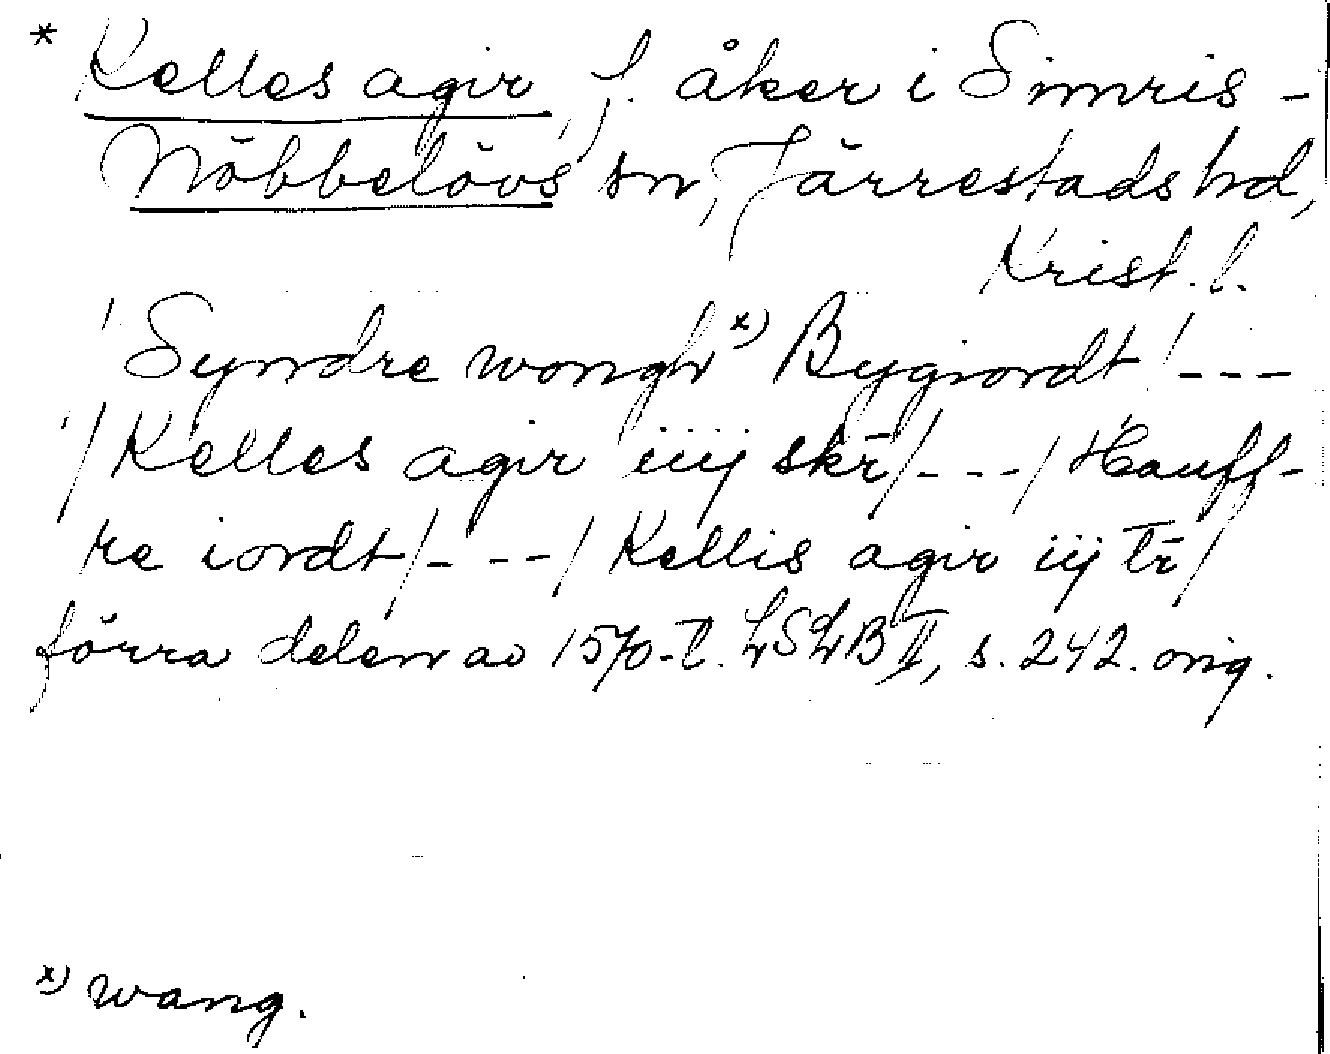 * Kelles agir, f. åker i Simris-
Nöbbelövs sn, Järrestads hd,
Krist. l.
' Syndre wongh x) Bygiordt / ---
' / Kelles agir iiij skr̄ / --- / Hauff-
re iordt / --- / Kellis agir iij Tr̄ /
förra delen av 1570-t. LSLB II, s. 242. orig.
x) wang.